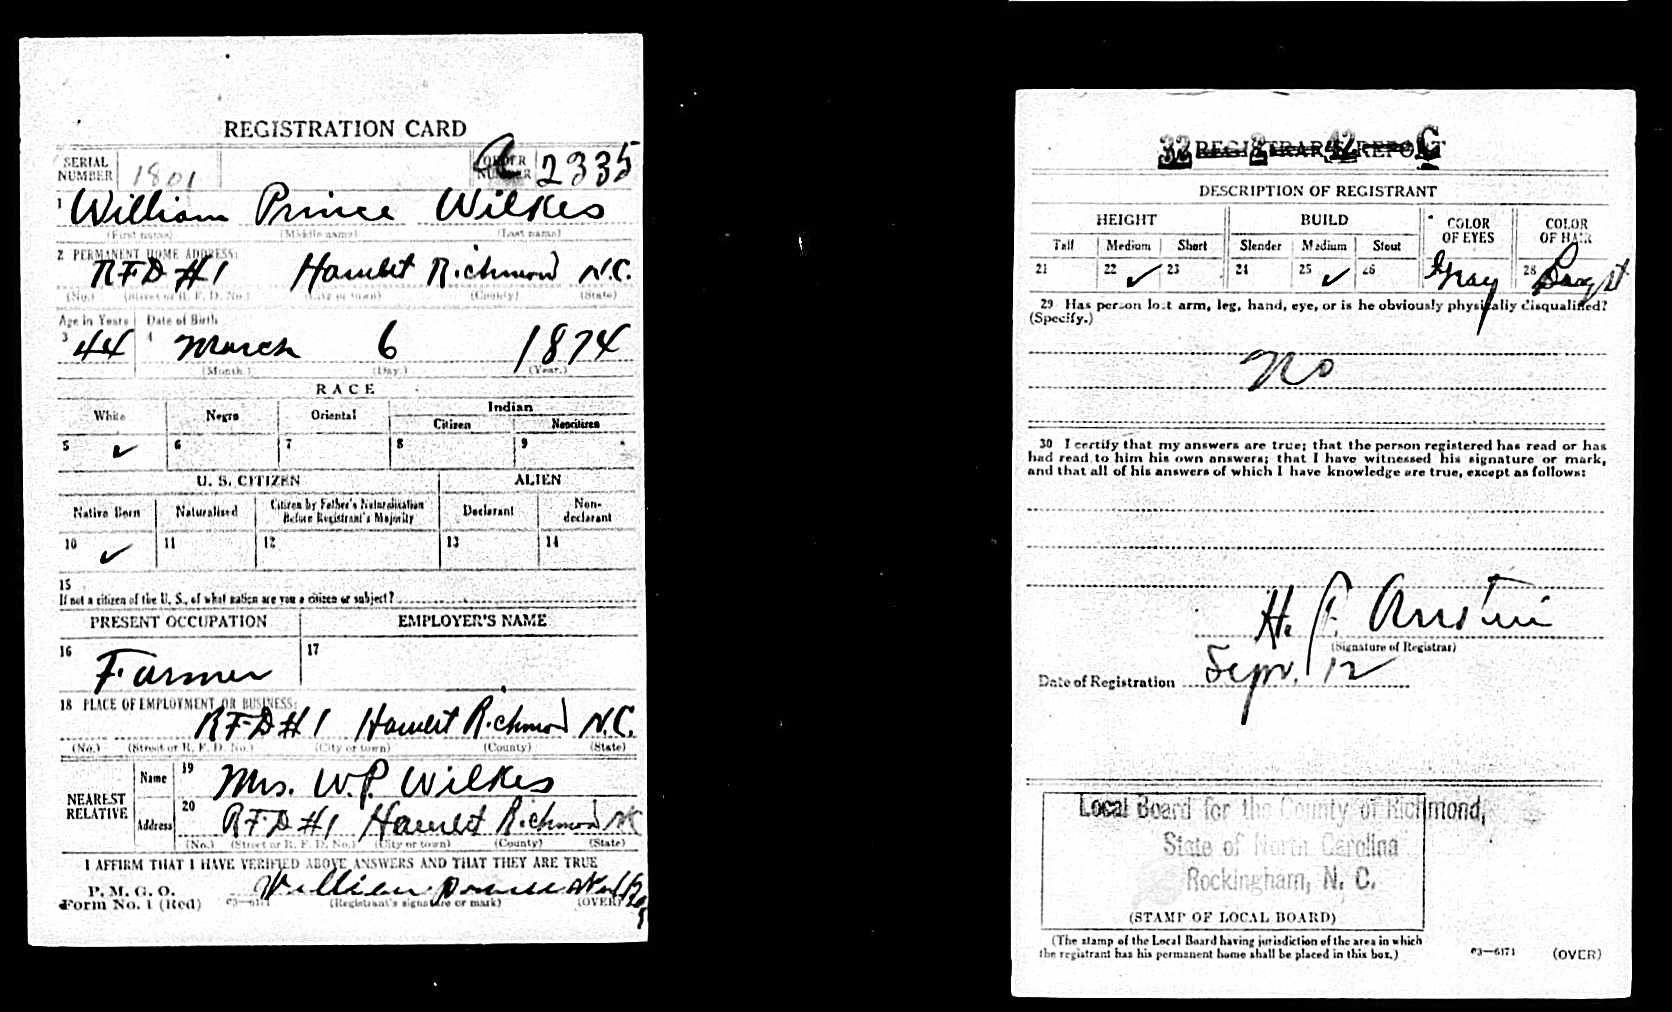 REGISTRATION CARD
SERIAL NUMBER 1801 ORDER NUMBER A 2335
1 William Prince Wilkes
(First name) (Middle name) (Last name)
2 PERMANENT HOME ADDRESS:
RFD #1 Hamlet Richmond N.C.
(No.) (Street or R. F. D. No.) (City or town) (County) (State)
Age in Years Date of Birth
3 44 4 March 6 1874
(Month.) (Day.) (Year.)
RACE
White Negro Oriental Indian
Citizen Noncitizen
5 ✓ 6 7 8 9
U. S. CITIZEN ALIEN
Native Born Naturalized Citizen by Father's Naturalization Before Registrant's Majority Declarant Non-declarant
10 ✓ 11 12 13 14
15
If not a citizen of the U. S., of what nation are you a citizen or subject?
PRESENT OCCUPATION EMPLOYER'S NAME
16 Farmer 17
18 PLACE OF EMPLOYMENT OR BUSINESS:
RFD #1 Hamlet Richmond N.C.
(No.) (Street or R. F. D. No.) (City or town) (County) (State)
NEAREST RELATIVE
Name 19 Mrs. W.P. Wilkes
Address 20 RFD #1 Hamlet Richmond NC
(No.) (Street or R. F. D. No.) (City or town) (County) (State)
I AFFIRM THAT I HAVE VERIFIED ABOVE ANSWERS AND THAT THEY ARE TRUE
P. M. G. O.
Form No. 1 (Red) 03—6171 William Prince Wilkes
(Registrant's signature or mark) (OVER)
32 2 42 C
REGISTRAR'S REPORT
DESCRIPTION OF REGISTRANT
HEIGHT BUILD COLOR OF EYES COLOR OF HAIR
Tall Medium Short Slender Medium Stout
21 22 ✓ 23 24 25 ✓ 26 Gray 28
29 Has person lost arm, leg, hand, eye, or is he obviously physically disqualified?
(Specify.)
No
30 I certify that my answers are true; that the person registered has read or has
had read to him his own answers; that I have witnessed his signature or mark,
and that all of his answers of which I have knowledge are true, except as follows:
H. T. Austin
(Signature of Registrar)
Date of Registration Sept. 12
Local Board for the County of Richmond,
State of North Carolina
Rockingham, N. C.
(STAMP OF LOCAL BOARD)
(The stamp of the Local Board having jurisdiction of the area in which
the registrant has his permanent home shall be placed in this box.)
03—6171 (OVER)